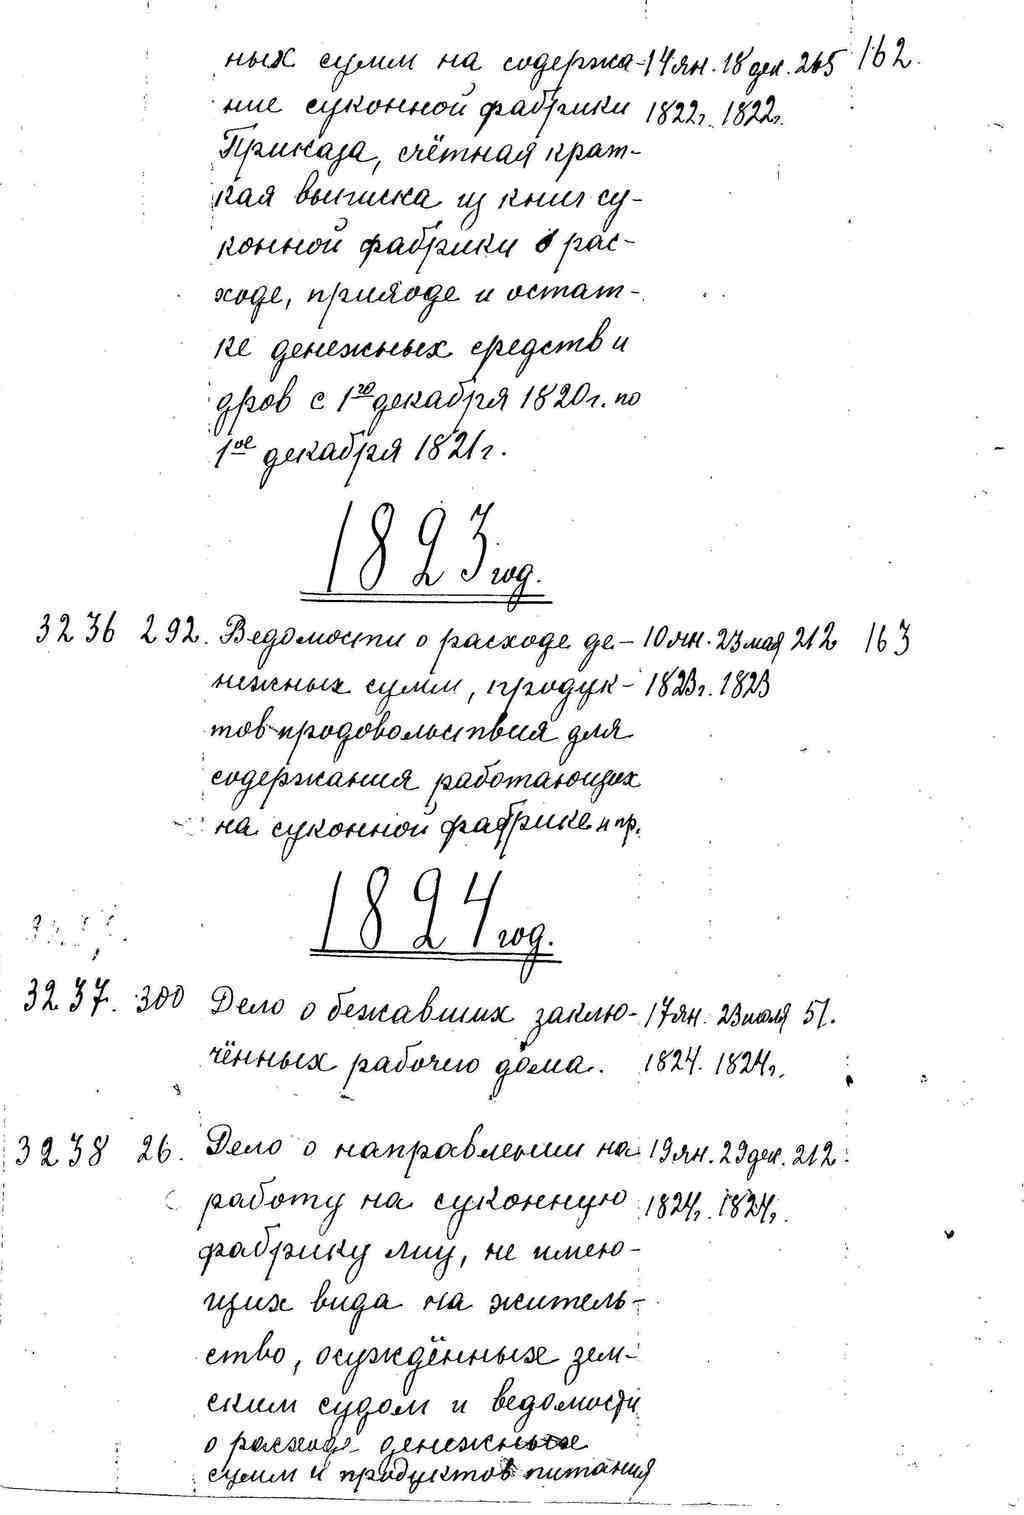 ных сумм на содержа- 14 ян. 18 дек. 265 162.
ние суконной фабрики 1822г. 1822г.
Приказа, счётная крат-
кая выписка из книг су-
конной фабрики о рас-
ходе, приходе и остат-
ке денежных средств и
дров с 1го декабря 1820г. по
1ое декабря 1821г.
1823 год.
3236 292. Ведомости о расходе де- 10 ян. 23 мая 212 163
нежных сумм, продук- 1823г. 1823
тов продовольствия для
содержания работающих
на суконной фабрике и пр.
1824 год.
3237. 300 Дело о бежавших заклю- 17 ян. 23 июля 51.
чённых рабочего дома. 1824. 1824г.
3238 26. Дело о направлении на 19 ян. 29 дек. 212
работу на суконную 1824г. 1824г.
фабрику лиц, не имею-
щих вида на житель-
ство, осуждённых зем-
ским судом и ведомости
о расходе денежных
сумм и продуктов питания